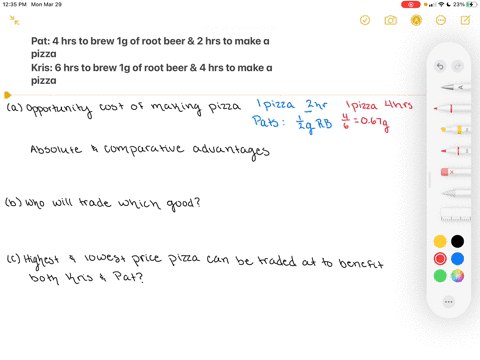 12:35 PM Mon Mar 29
23%
Pat: 4 hrs to brew 1g of root beer & 2 hrs to make a
pizza
Kris: 6 hrs to brew 1g of root beer & 4 hrs to make a
pizza
(a) Opportunity cost of making pizza 1 pizza 2hr 1 pizza 4hrs
Pats: 1/2 g RB 4/6 = 0.67g
Absolute & comparative advantages
(b) Who will trade which good?
(c) Highest & lowest price pizza can be traded at to benefit
both Kris & Pat?